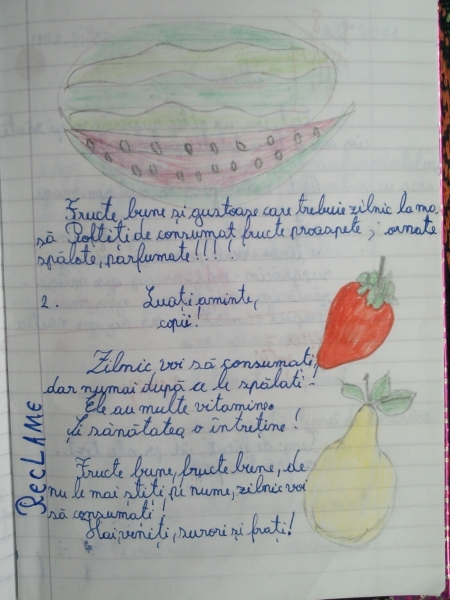 Fructe bune și gustoase care trebuie zilnic la ma
să Poftiți de consumat fructe proaspete, ornate
spălate, parfumate!!!!
2. Luați aminte,
copii!
Zilnic voi să consumați,
dar numai după ce le spălați-
Ele au multe vitamine.
Și sănătatea o întreține!
Fructe bune, fructe bune, de
nu le mai știți pi nume, zilnic voi
să consumati!
Hai, veniți, surori și frați!
ReCLAME